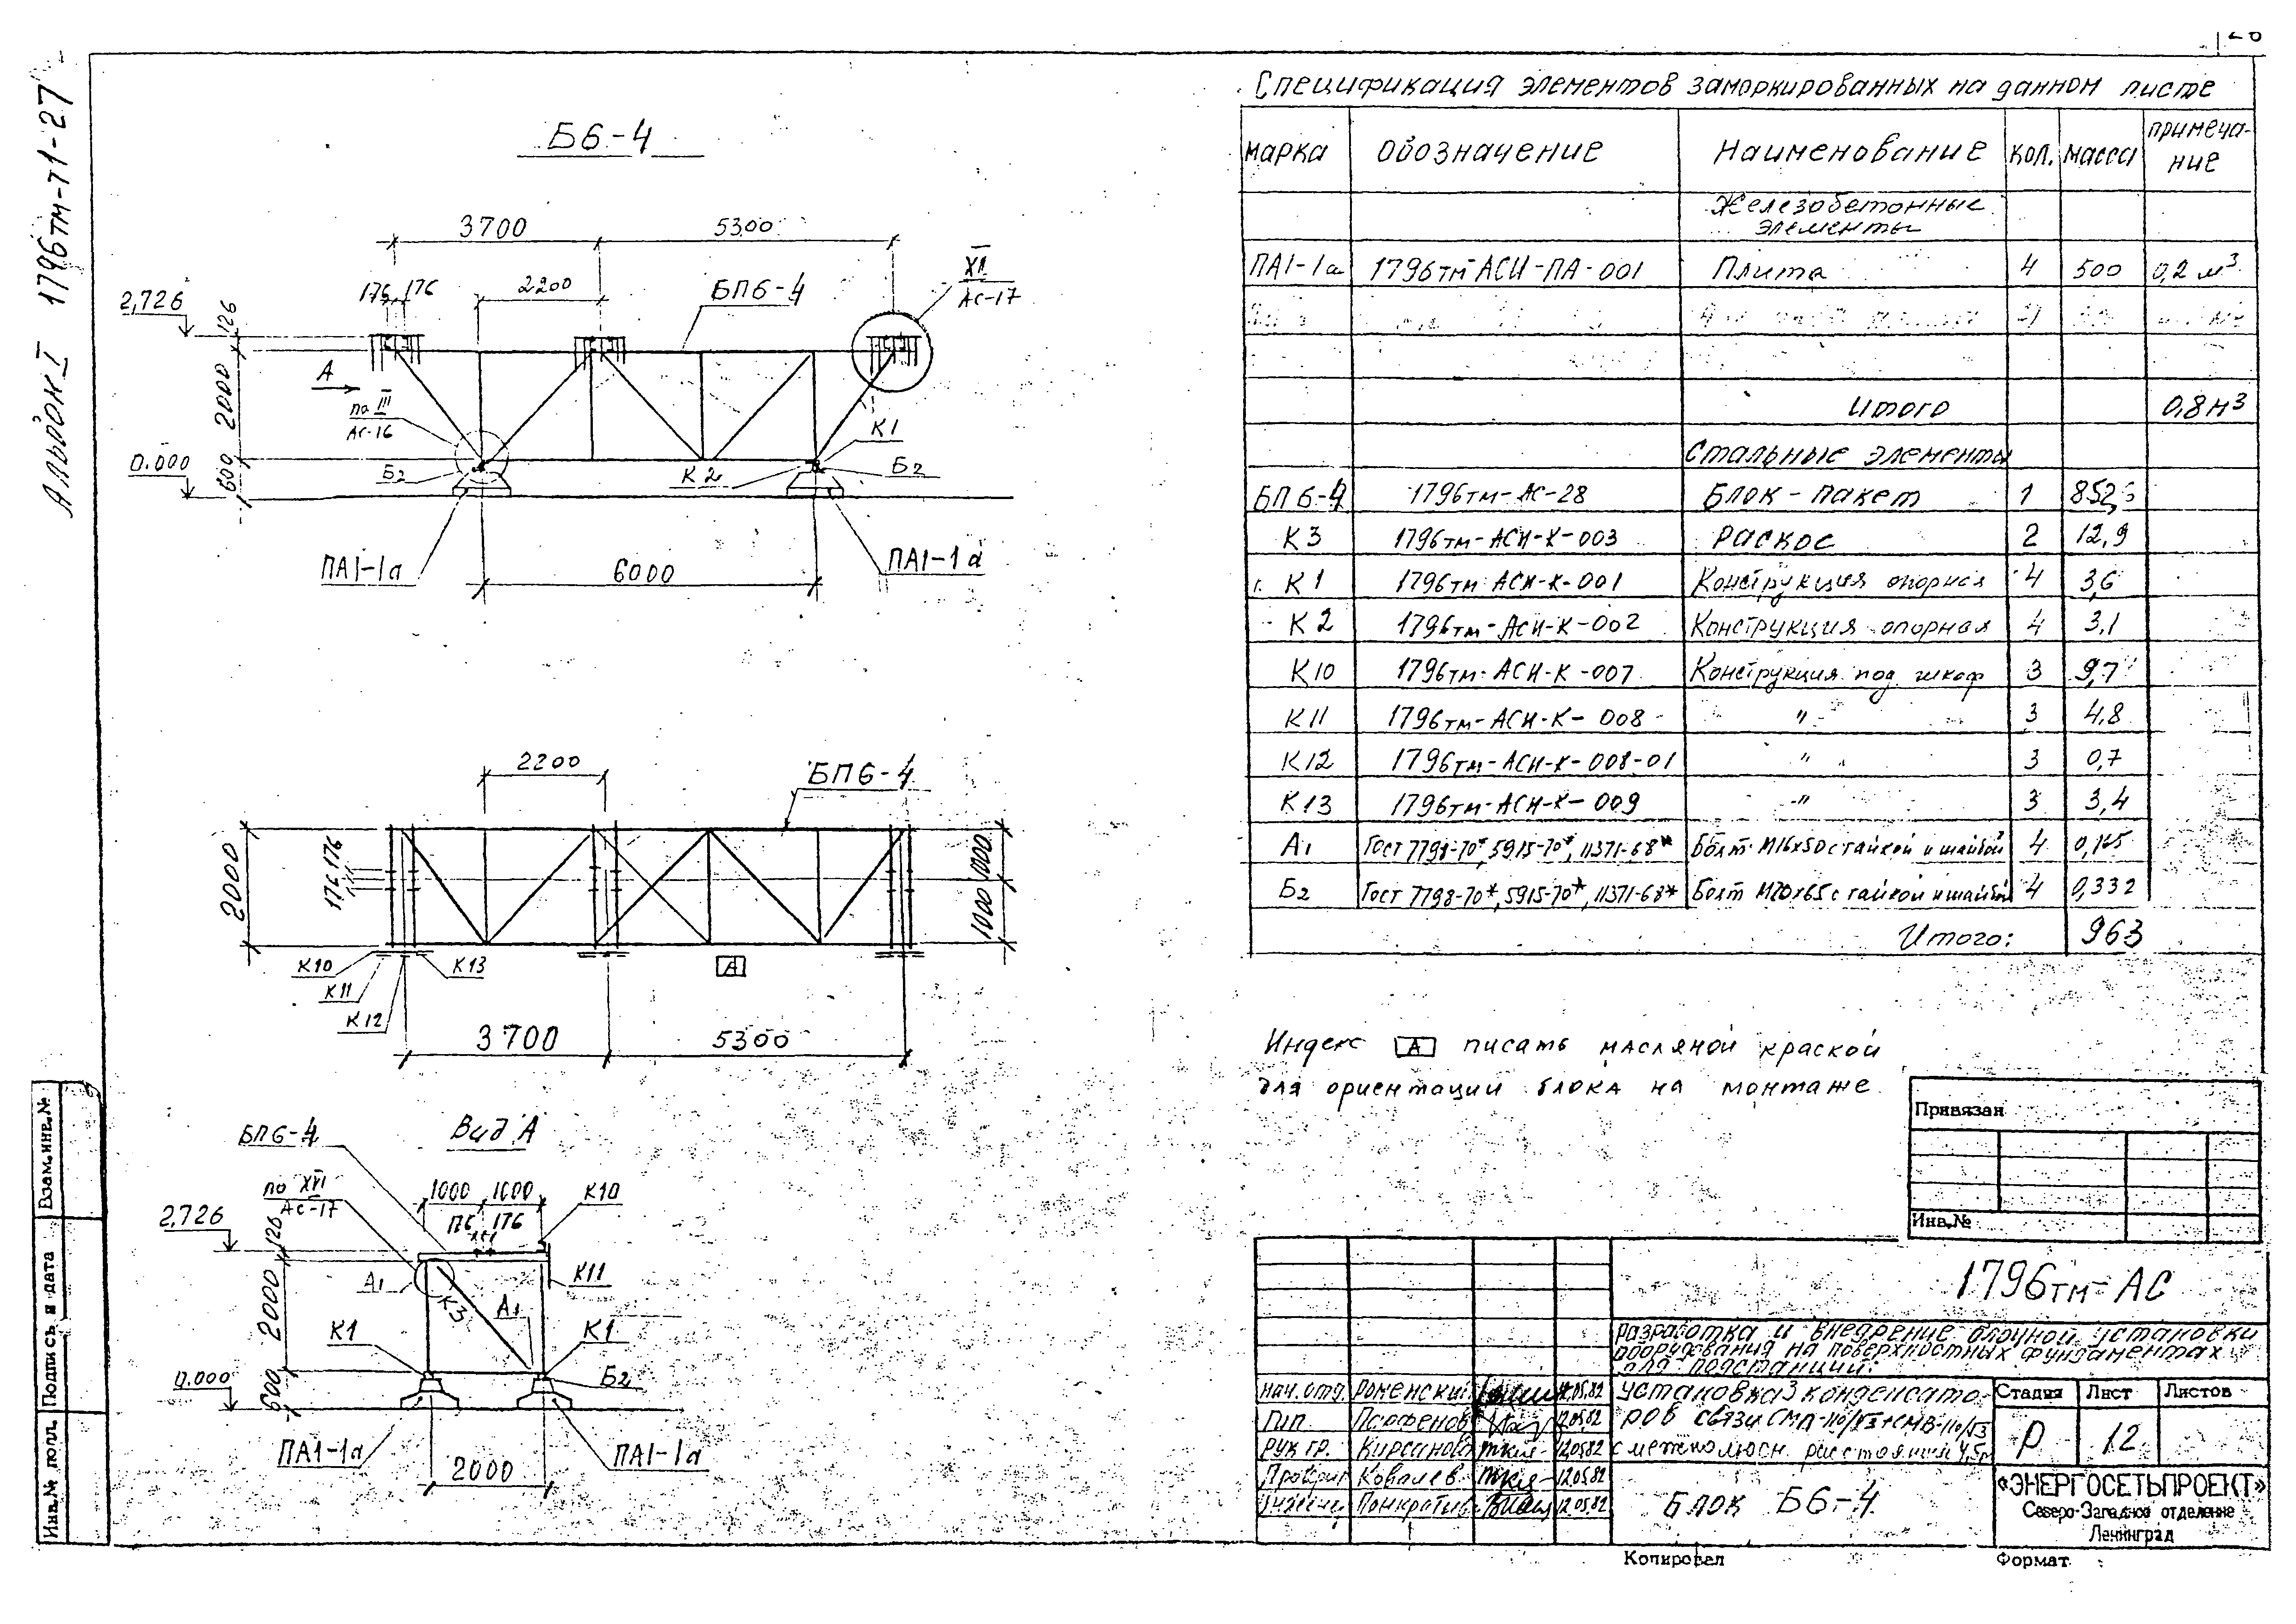 Альбом I 1796тм-т1-27
Б6-4
3700 5300
XII
АС-17
176 176 2200 БП6-4
2,726
126
2000
600
А
по III
АС-16
0.000
Б2 К2 К1 Б2
ПА1-1а 6000 ПА1-1а
2200 БП6-4
2000
176 176
1000 1000
К10 К13
К11
К12
А
3700 5300
БП6-4 Вид А
по XVI
АС-17
1000 1000 К10
176 176
2,726
126
2000
600
А1 К3 А1 К11
К1 К1
0.000 Б2
ПА1-1а ПА1-1а
2000
Спецификация элементов замаркированных на данном листе
марка Обозначение Наименование кол. масса примеча-
ние
Железобетонные
элементы
ПА1-1а 1796тм-АСИ-ПА-001 Плита 4 500 0,2 м³
Итого 0,8м³
Стальные элементы
БП6-4 1796тм-АС-28 Блок-пакет 1
К3 1796тм-АСИ-К-003 Раскос 2 12,9
К1 1796тм-АСИ-К-001 Конструкция опорная 4 3,6
К2 1796тм-АСИ-К-002 Конструкция опорная 4 3,1
К10 1796тм-АСИ-К-007 Конструкция под шкаф 3 9,7
К11 1796тм-АСИ-К-008 " 3 4,8
К12 1796тм-АСИ-К-008-01 " 3 0,7
К13 1796тм-АСИ-К-009 " 3 3,4
А1 Гост 7798-70*, 5915-70*, 11371-68* Болт М16х50 с гайкой и шайбой 4
Б2 Гост 7798-70*, 5915-70*, 11371-68* Болт М20х65 с гайкой и шайбой 4 0,332
Итого: 963
Индекс А писать масляной краской
для ориентации блока на монтаже
Привязан
Инв.№
1796тм-АС
Разработка и внедрение блочной установки
оборудования на поверхностных фундаментах
для подстанций.
нач. отд. Роменский 12.05.82
ГИП Парфенов 12.05.82
рук. гр. Кирсанова 12.05.82
Ковалев 12.05.82
12.05.82
Установка 3 конденсато-
ров связи СМП-110/√3+СМВ-110/√3
с межполюсн. расстоянием 4,5м
Стадия Лист Листов
Р 12
Блок Б6-4
«ЭНЕРГОСЕТЬПРОЕКТ»
Северо-Западное отделение
Ленинград
Копировал Формат
Взам.инв.№
Подпись и дата
Инв.№ подл.